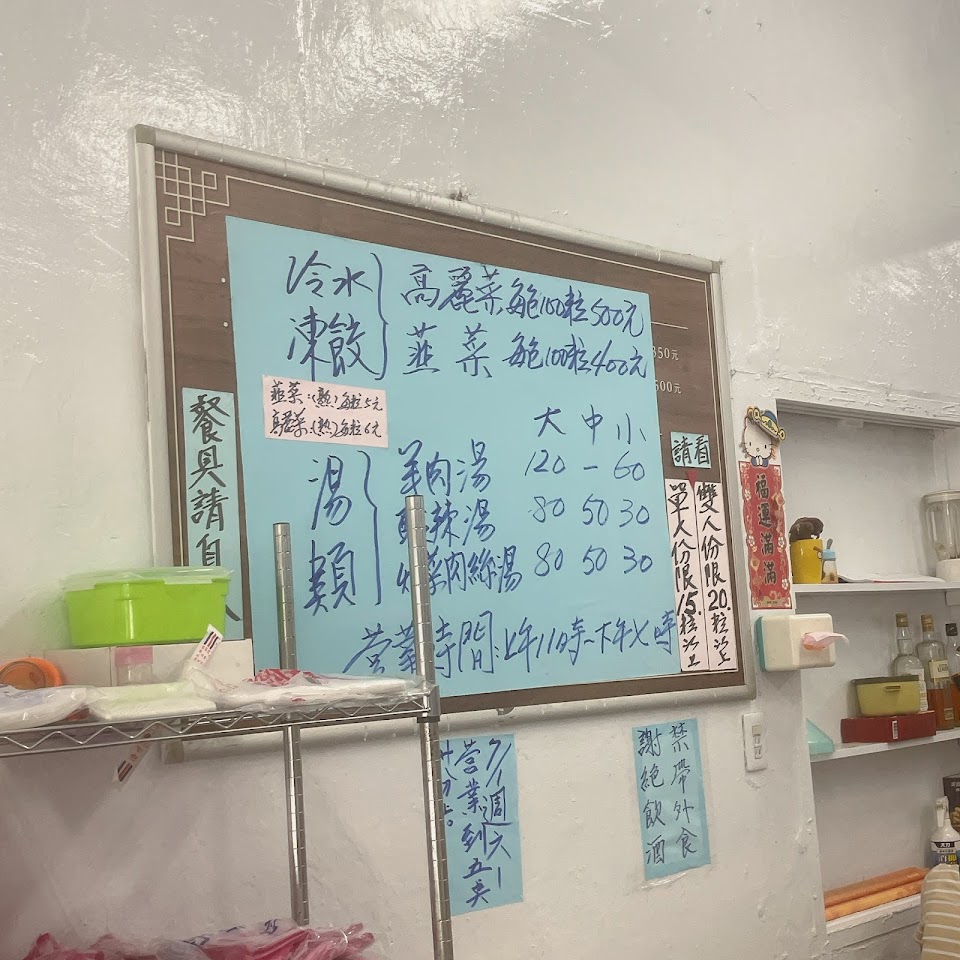 冷水
凍餃
高麗菜每包100粒500元
韮菜 每包100粒400元
韮菜(熟)每粒5元
高麗菜(熟)每粒6元
大 中 小
湯類
羊肉湯 120 - 60
酸辣湯 80 50 30
菜肉絲湯 80 50 30
營業時間:上午11時~下午七時
350元
500元
餐具請自
請看
雙人份限20粒
單人份限15粒
福運滿滿
7/1週六
營業到五
禁帶外食
謝絕飲酒